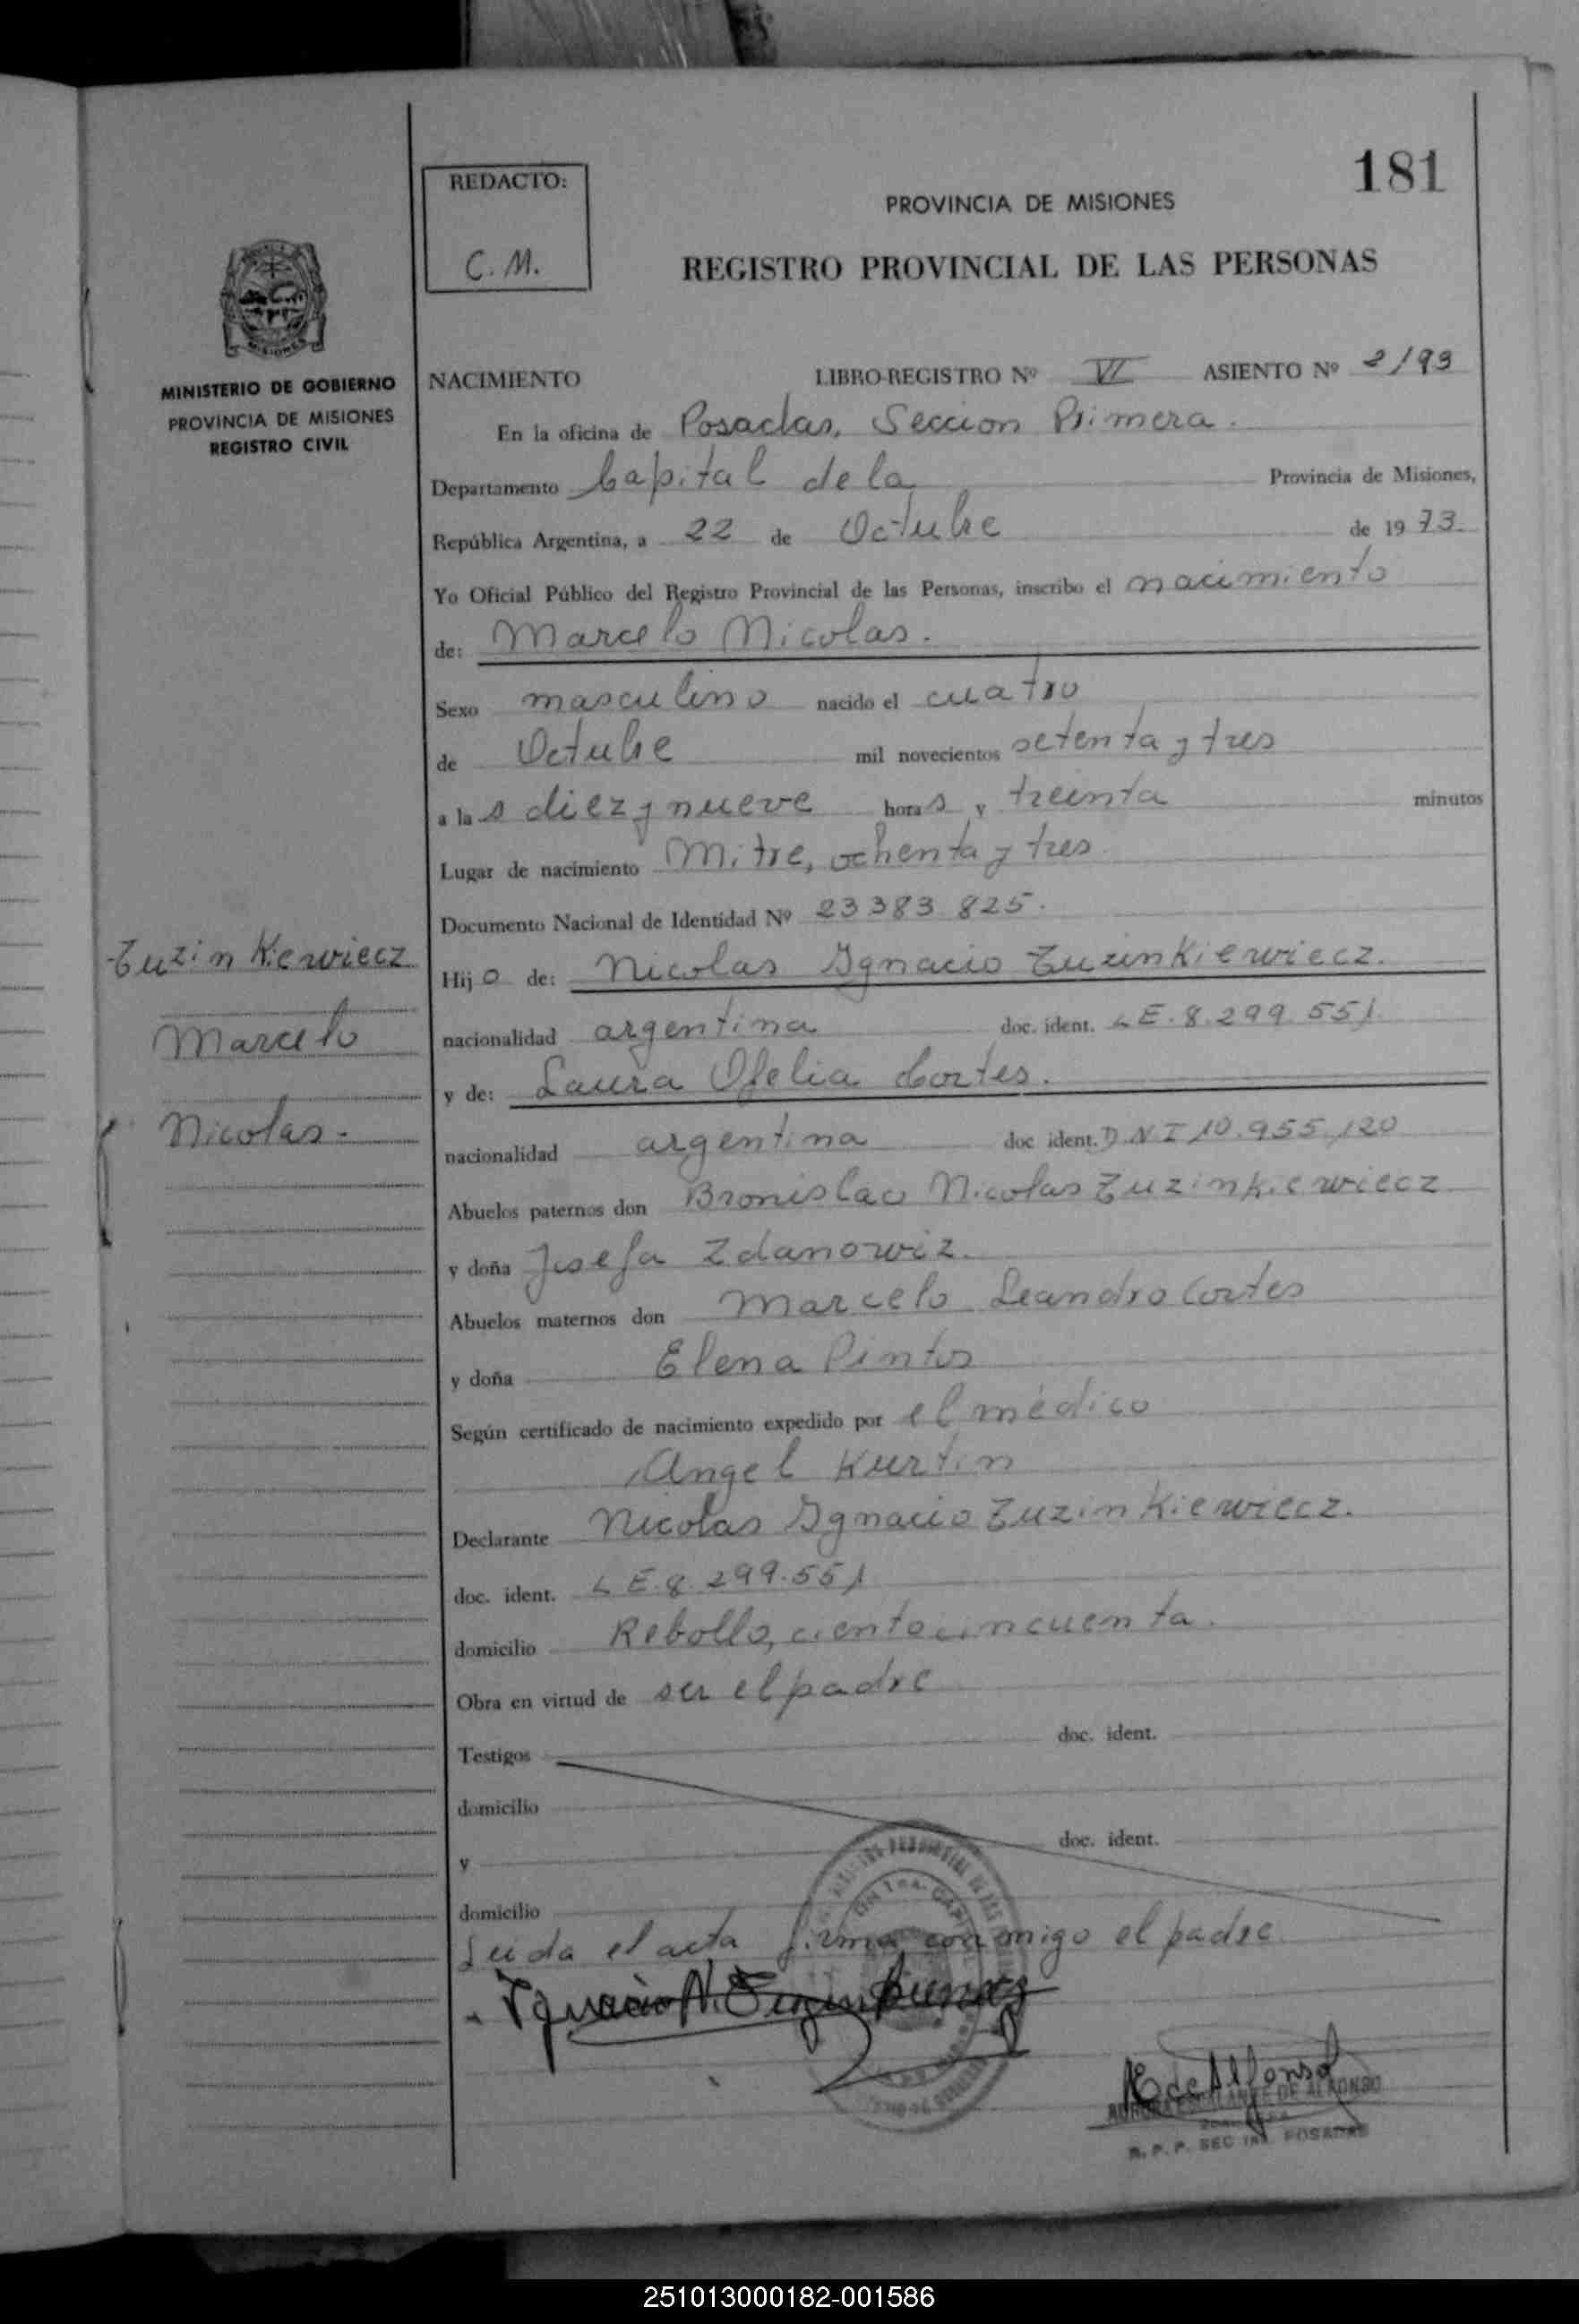 181
REDACTO:
C. M.
PROVINCIA DE MISIONES
REGISTRO PROVINCIAL DE LAS PERSONAS
MISIONES
MINISTERIO DE GOBIERNO
PROVINCIA DE MISIONES
REGISTRO CIVIL
NACIMIENTO LIBRO-REGISTRO Nº VI ASIENTO Nº 2193
En la oficina de Posadas, Seccion Primera.
Departamento Capital de la Provincia de Misiones,
República Argentina, a 22 de Octubre de 1973.
Yo Oficial Público del Registro Provincial de las Personas, inscribo el nacimiento
de: Marcelo Nicolas.
Sexo masculino nacido el cuatro
de Octubre mil novecientos setenta y tres
a las diez y nueve horas y treinta minutos
Lugar de nacimiento Mitre, ochenta y tres.
Documento Nacional de Identidad Nº 23383825.
Zuzinkiewiecz
Marcelo
Nicolas.
Hijo de: Nicolas Ignacio Zuzinkiewiecz.
nacionalidad argentina doc. ident. L E. 8.299.551.
y de: Laura Ofelia Cortes.
nacionalidad argentina doc ident. D N I 10.955.120
Abuelos paternos don Bronislao Nicolas Zuzinkiewiecz
y doña Josefa Zdanowiz.
Abuelos maternos don Marcelo Leandro Cortes
y doña Elena Pintos
Según certificado de nacimiento expedido por el médico
Angel Kurtin
Declarante Nicolas Ignacio Zuzinkiewiecz.
doc. ident. L E. 8.299.551
domicilio Rebollo, ciento cincuenta.
Obra en virtud de ser el padre
Testigos doc. ident.
domicilio
y doc. ident.
domicilio
Leida el acta firma conmigo el padre
Ignacio N.
A. E. de Alfonso
ESCALANTE DE ALFONSO
R. P. P. SEC 1ra. POSADAS
251013000182-001586